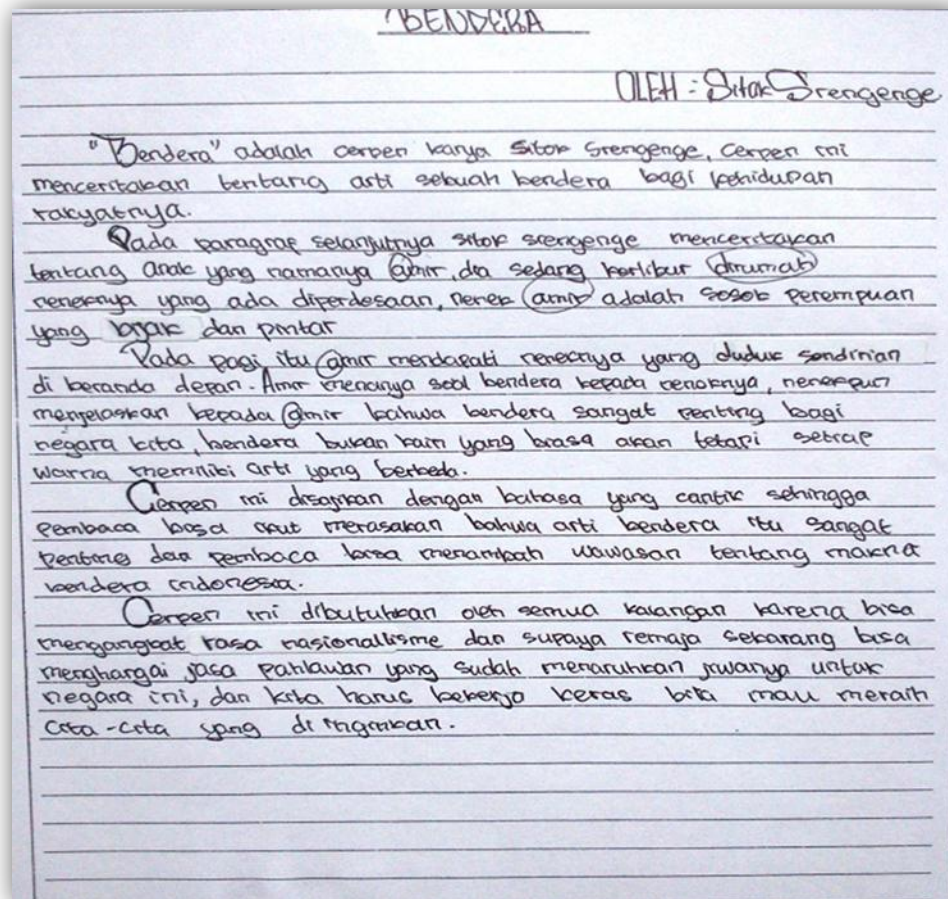 BENDERA
OLEH : Sitok Srengenge
"Bendera" adalah cerpen karya Sitok Srengenge, Cerpen ini
menceritakan tentang arti sebuah bendera bagi kehidupan
rakyatnya.
Pada paragraf selanjutnya sitok srengenge menceritakan
tentang anak yang namanya amir, dia sedang berlibur dirumah
neneknya yang ada diperdesaan, nenek amir adalah sosok perempuan
yang bijak dan pintar
Pada pagi itu amir mendapati neneknya yang duduk sendirian
di beranda depan. Amir menanya soal bendera kepada neneknya, nenekpun
menjelaskan kepada amir bahwa bendera sangat penting bagi
negara kita, bendera bukan kain yang biasa akan tetapi setiap
warna memiliki arti yang berbeda.
Cerpen ini disajikan dengan bahasa yang cantik sehingga
pembaca bisa ikut merasakan bahwa arti bendera itu sangat
penting dan pembaca bisa menambah wawasan tentang makna
bendera indonesia.
Cerpen ini dibutuhkan oleh semua kalangan karena bisa
mengangkat rasa nasionallisme dan supaya remaja sekarang bisa
menghargai jasa pahlawan yang sudah menaruhkan jiwanya untuk
negara ini, dan kita harus bekerja keras bila mau meraih
cita-cita yang di inginkan.